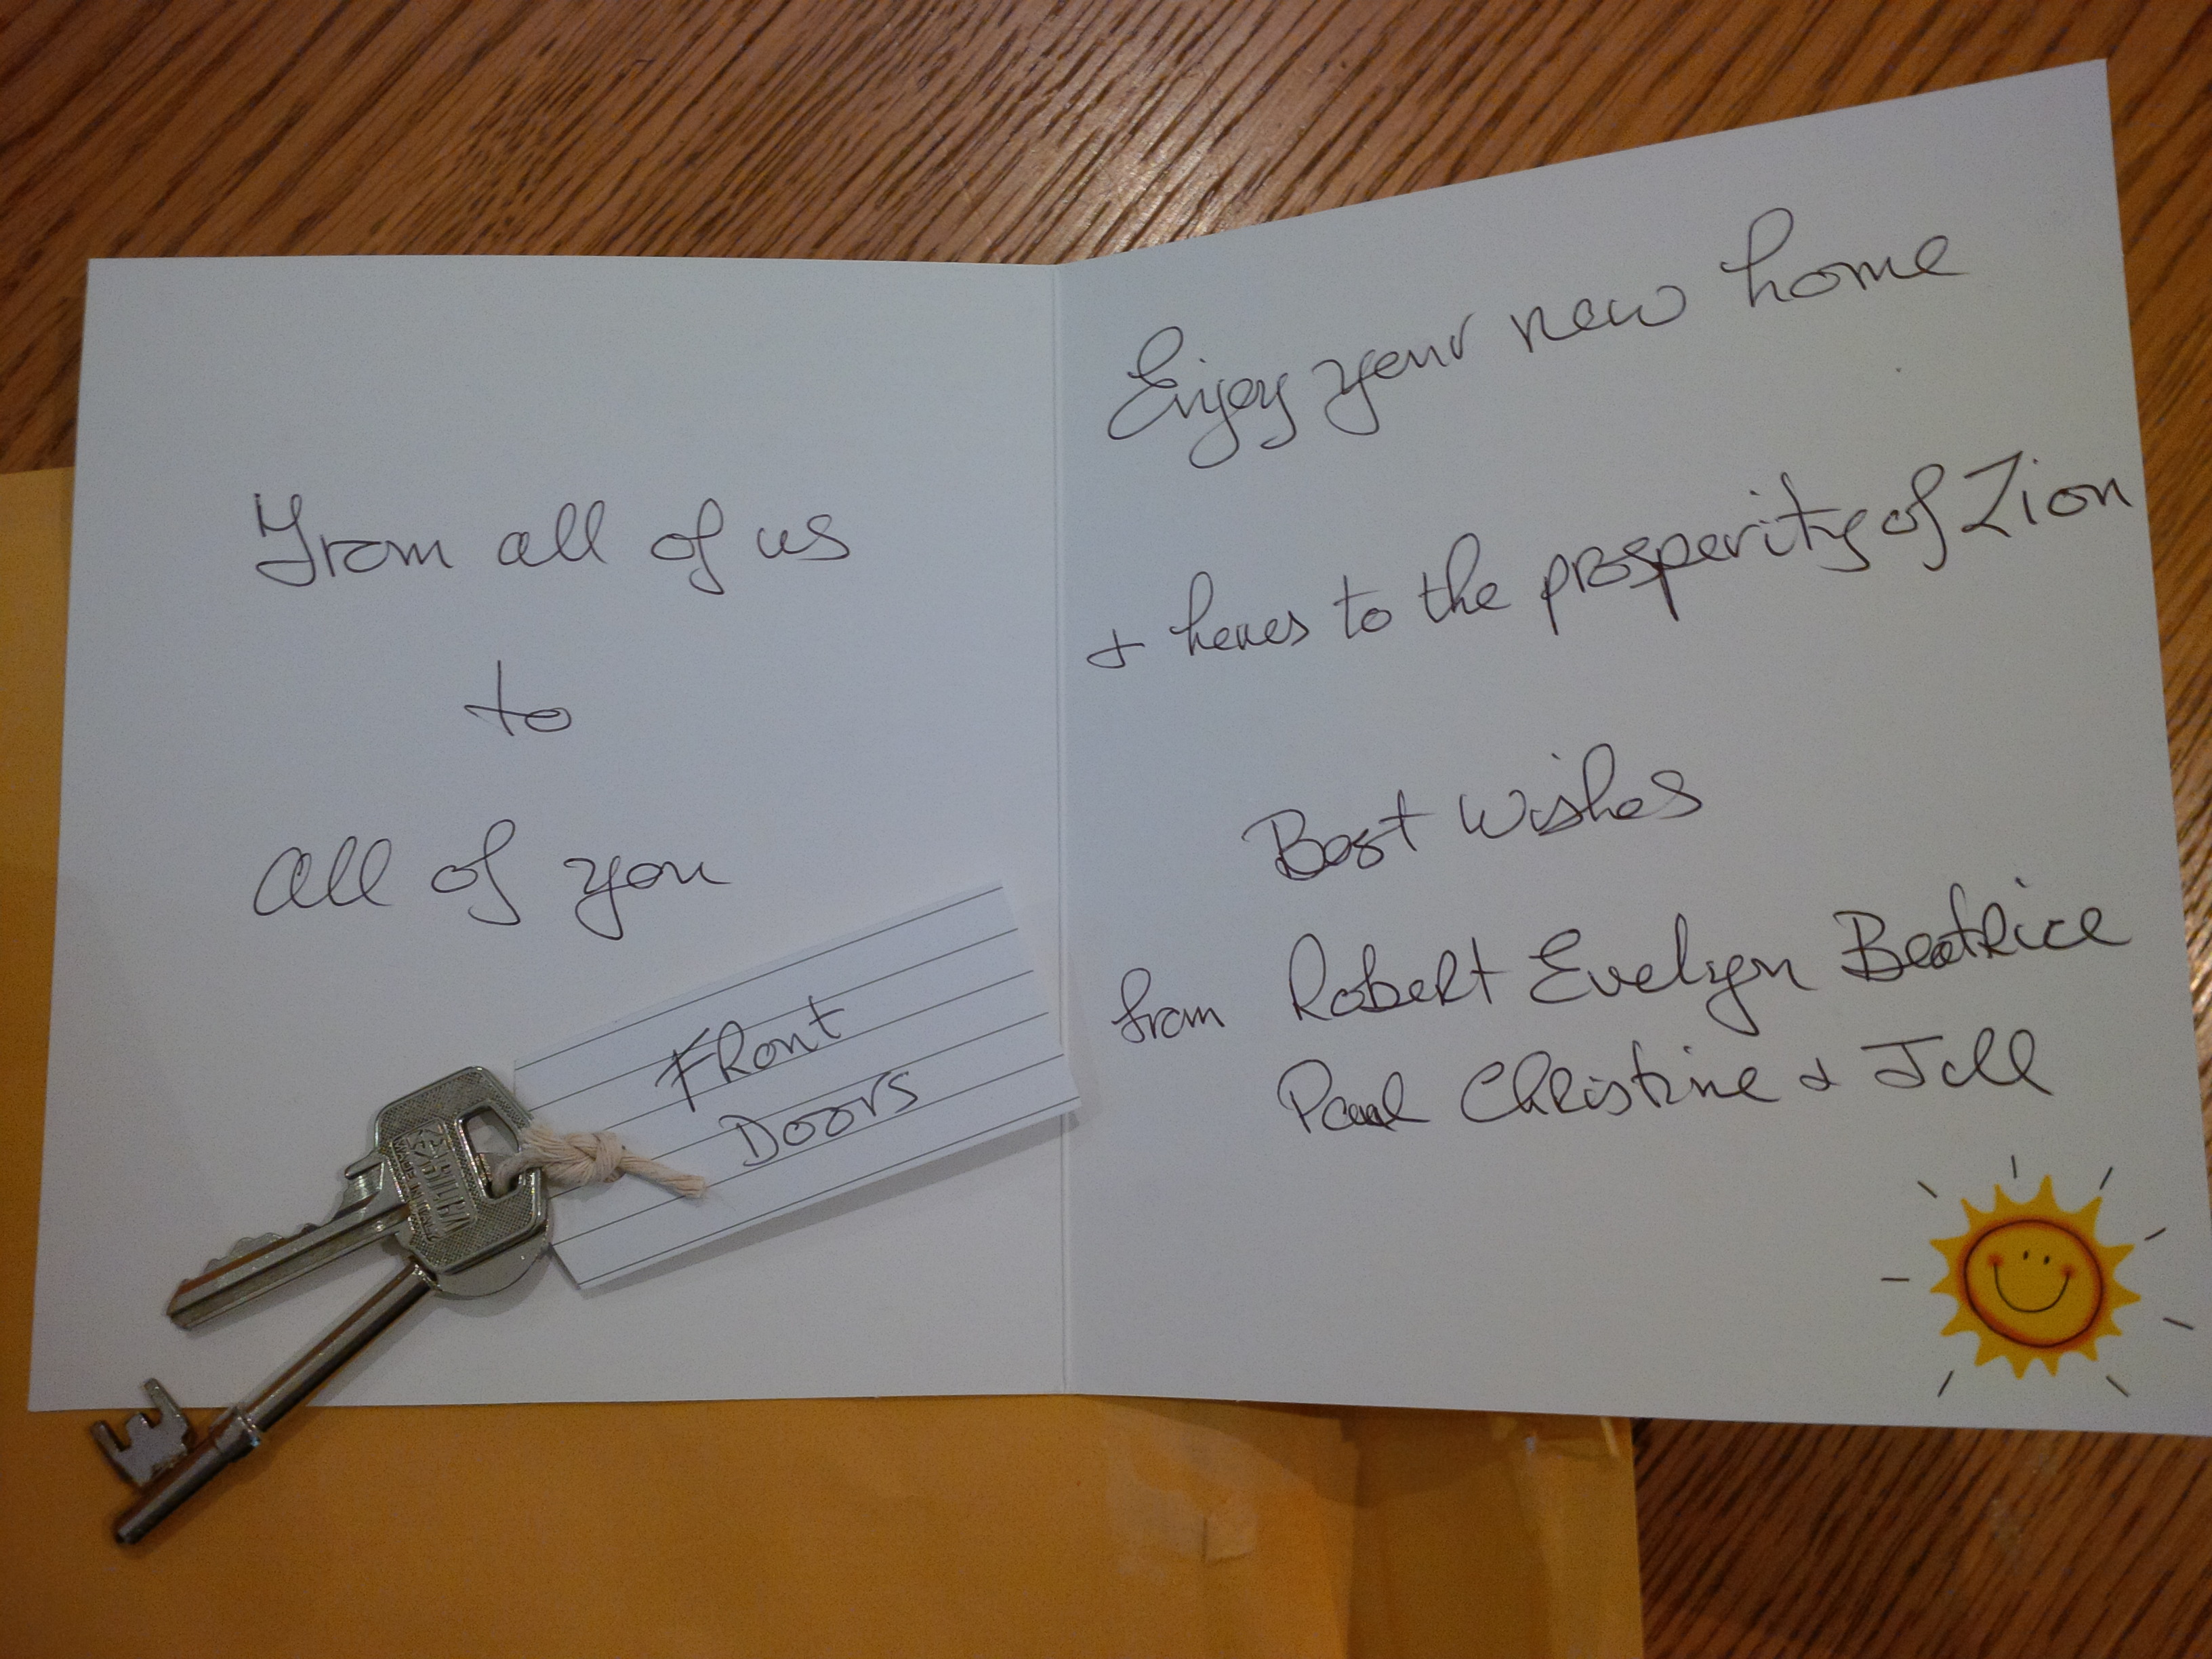 From all of us
to
all of you
Front
Doors
Enjoy your new home
+ heres to the prosperity of Zion
Best Wishes
from Robert Evelyn Beatrice
Paul Christine & Jill